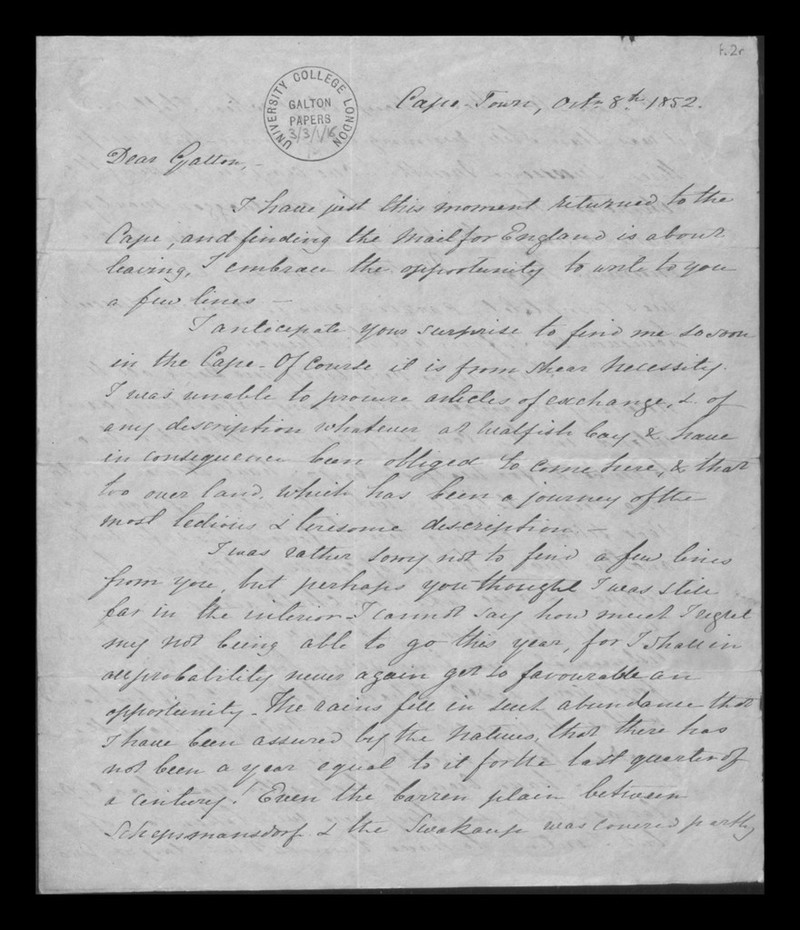 f.2r
UNIVERSITY COLLEGE LONDON
GALTON
PAPERS
3/3/1/6
Cape-Town, Octr 8th 1852.
Dear Galton,-
I have just this moment returned to the
Cape, and finding the Mail for England is about
leaving, I embrace the opportunity to write to you
a few lines -
I anticipate your surprise to find me so soon
in the Cape - Of course it is from shear necessity.
I was unable to procure articles of exchange, & of
any description whatever at Walfish bay & have
in consequence been obliged to come here, & that
too over land, which has been a journey of the
most tedious & tiresome description -
I was rather sorry not to find a few lines
from you, but perhaps you thought I was still
far in the interior - I cannot say how much I regret
my not being able to go this year, for I shall in
all probability never again get so favourable an
opportunity - The rains fell in such abundance that
I have been assured by the Natives, that there has
not been a year equal to it for the last quarter of
a century! Even the barren plain between
Schepmansdorf & the Swakaup was covered partly